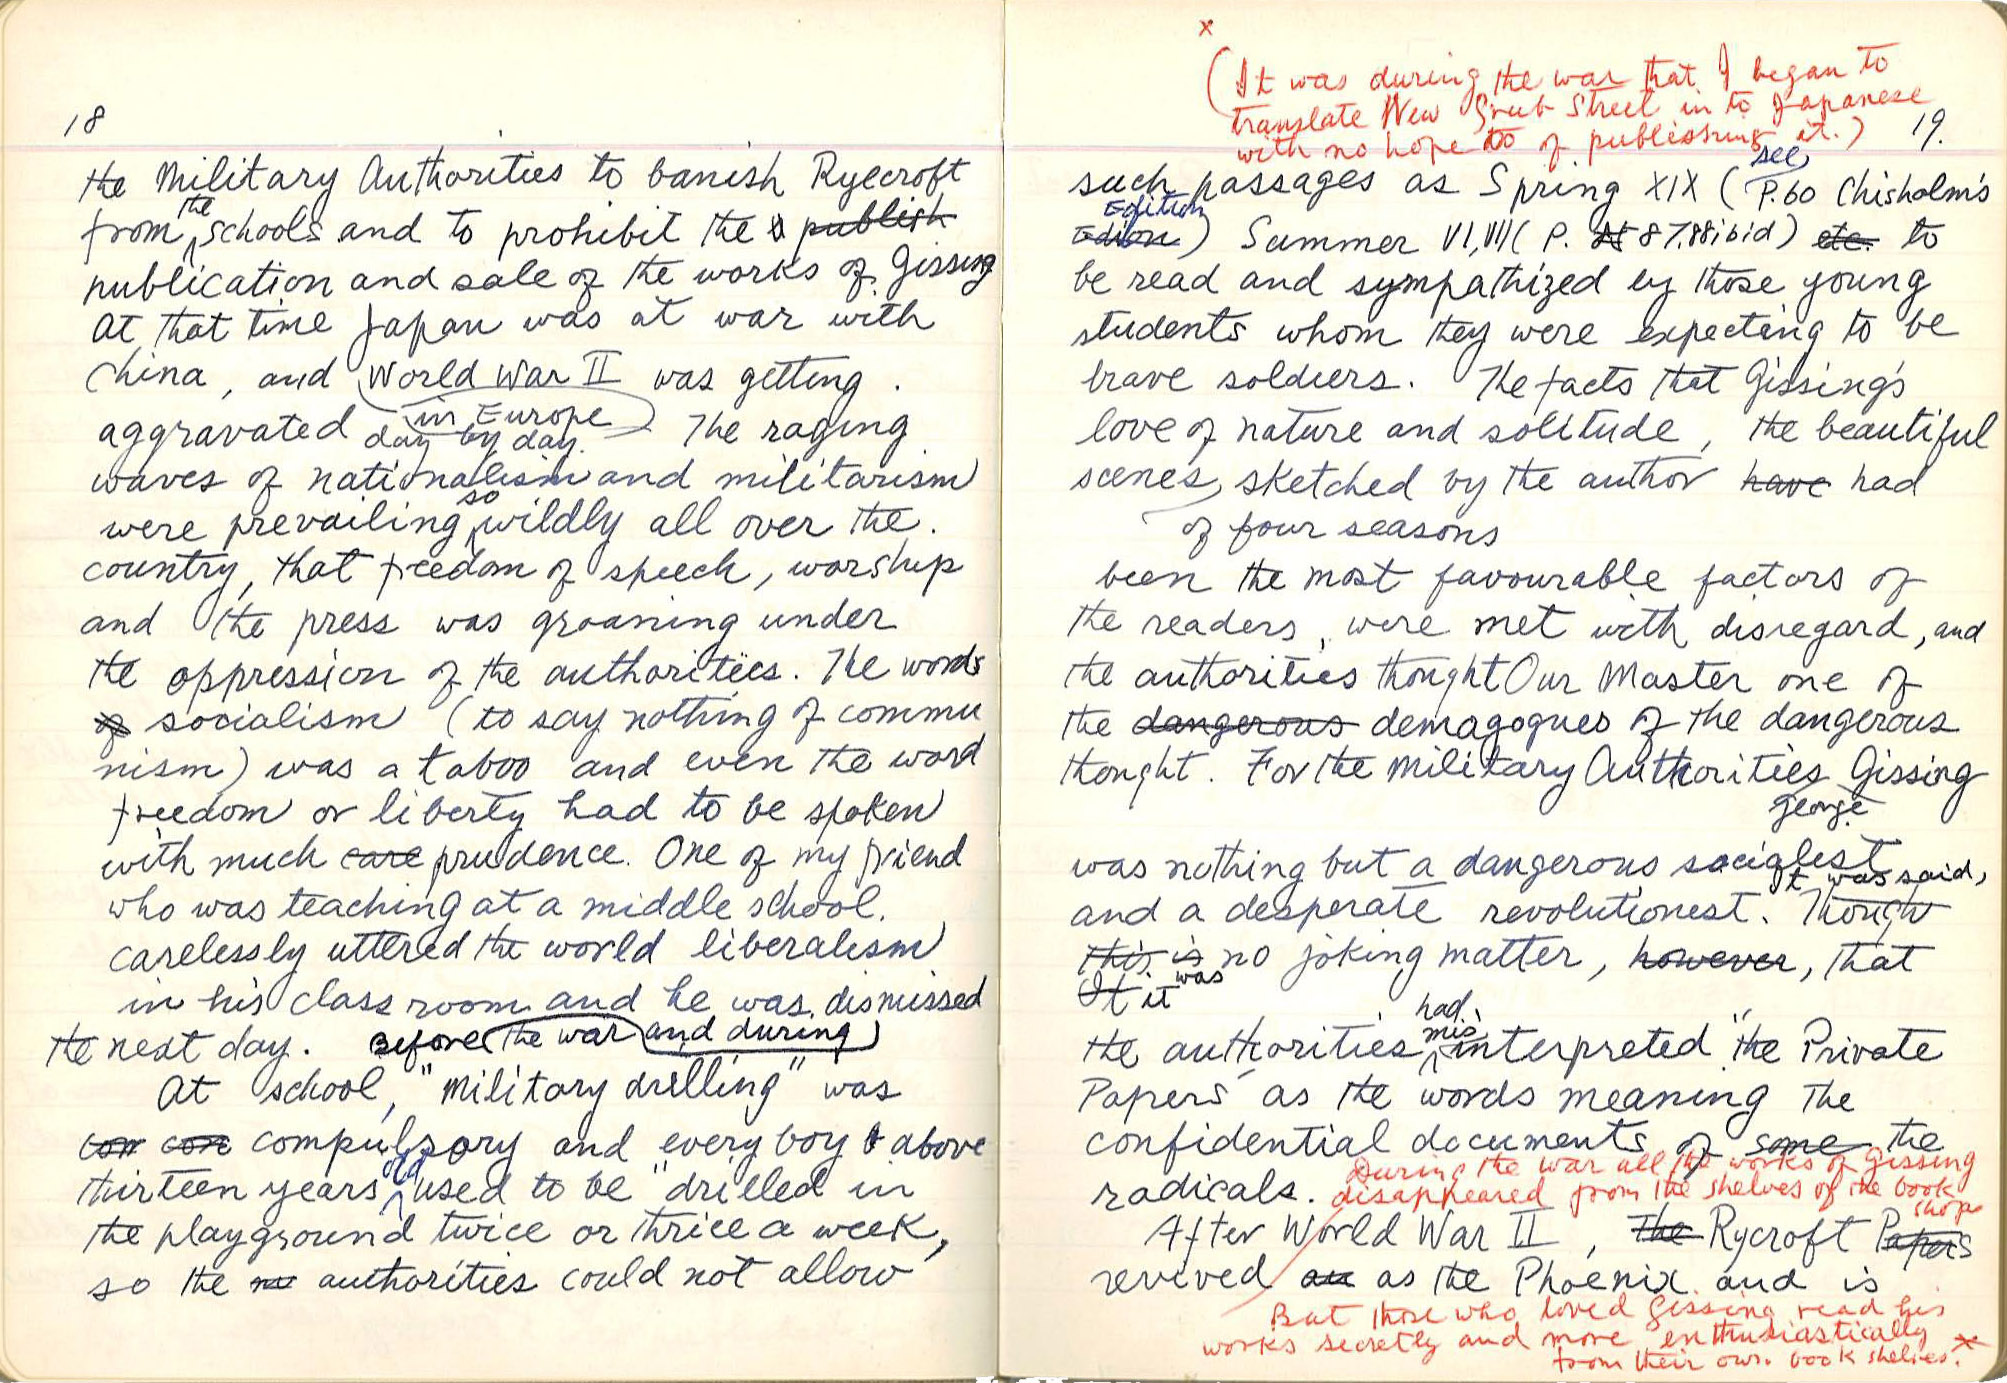 18
the Military Authorities to banish Ryecroft
from the schools and to prohibit the publish
publication and sale of the works of Gissing
At that time Japan was at war with
China, and World War II was getting
in Europe
aggravated day by day. The raging
waves of nationalism and militarism
were prevailing so wildly all over the
country, that freedom of speech, worship
and the press was groaning under
the oppression of the authorities. The words
of socialism (to say nothing of commu
nism) was a taboo and even the word
freedom or liberty had to be spoken
with much care prudence. One of my friend
who was teaching at a middle school
carelessly uttered the world liberalism
in his class room and he was dismissed
the next day. Before the war and during
At school, "military drilling" was
con con compulsory and every boy above
thirteen years old used to be "drilled in
the playground twice or thrice a week,
so the authorities could not allow
x
(It was during the war that I began to
translate New Grub Street in to Japanese
with no hope to of publisshing it.)
19.
such passages as Spring XIX (see P.60 Chisholm's
Edition
Edion) Summer VI, VII (P. 87.88 ibid) etc. to
be read and sympathized by those young
students whom they were expecting to be
brave soldiers. The facts that Gissing's
love of nature and solitude, the beautiful
scenes, sketched by the author have had
of four seasons
been the most favourable factors of
the readers, were met with disregard, and
the authorities thought Our Master one of
the dangerous demagogues of the dangerous
thought. For the Military Authorities Gissing
George
was nothing but a dangerous socialist
It was said,
and a desperate revolutionest. Though
this is no joking matter, however, that
It it was
had
the authorities misinterpreted "the Private
Papers" as the words meaning the
confidential documents of some the
radicals. During the war all the works of Gissing
disappeared from the shelves of the book
shops
After World War II, The Rycroft Papers
revived as as the Phoenix and is
But those who loved Gissing read his
works secretly and more enthusiastically x
from their own book shelves.